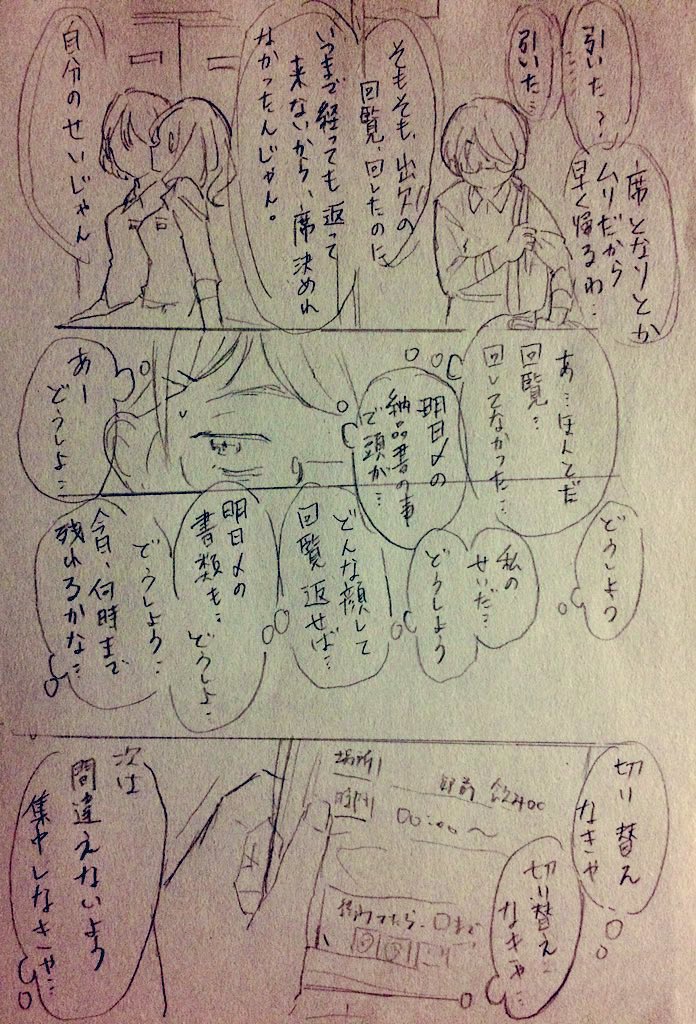 引いた?
引いた…
席となりとか
ムリだから
早く帰るわ…
そもそも、出欠の
回覧、回したのに
いつまで経っても返って
来ないから、席決めれ
なかったんじゃん。
自分のせいじゃん
あ…ほんとだ
回覧…
回してなかった…
明日〆の
納品書の事
で頭が…
あー
どうしよ…
どうしよう
私の
せいだ…
どうしよう
どんな顔して
回覧 返せば…
明日〆の
書類も… どうしよ…
どうしよう…
今日、何時まで
残れるかな…
切り替え
なきゃ
切り替え…
なきゃ…
場所
駅前 飲み○○
時間
00:00〜
次は
間違えないよう
集中しなきゃ…